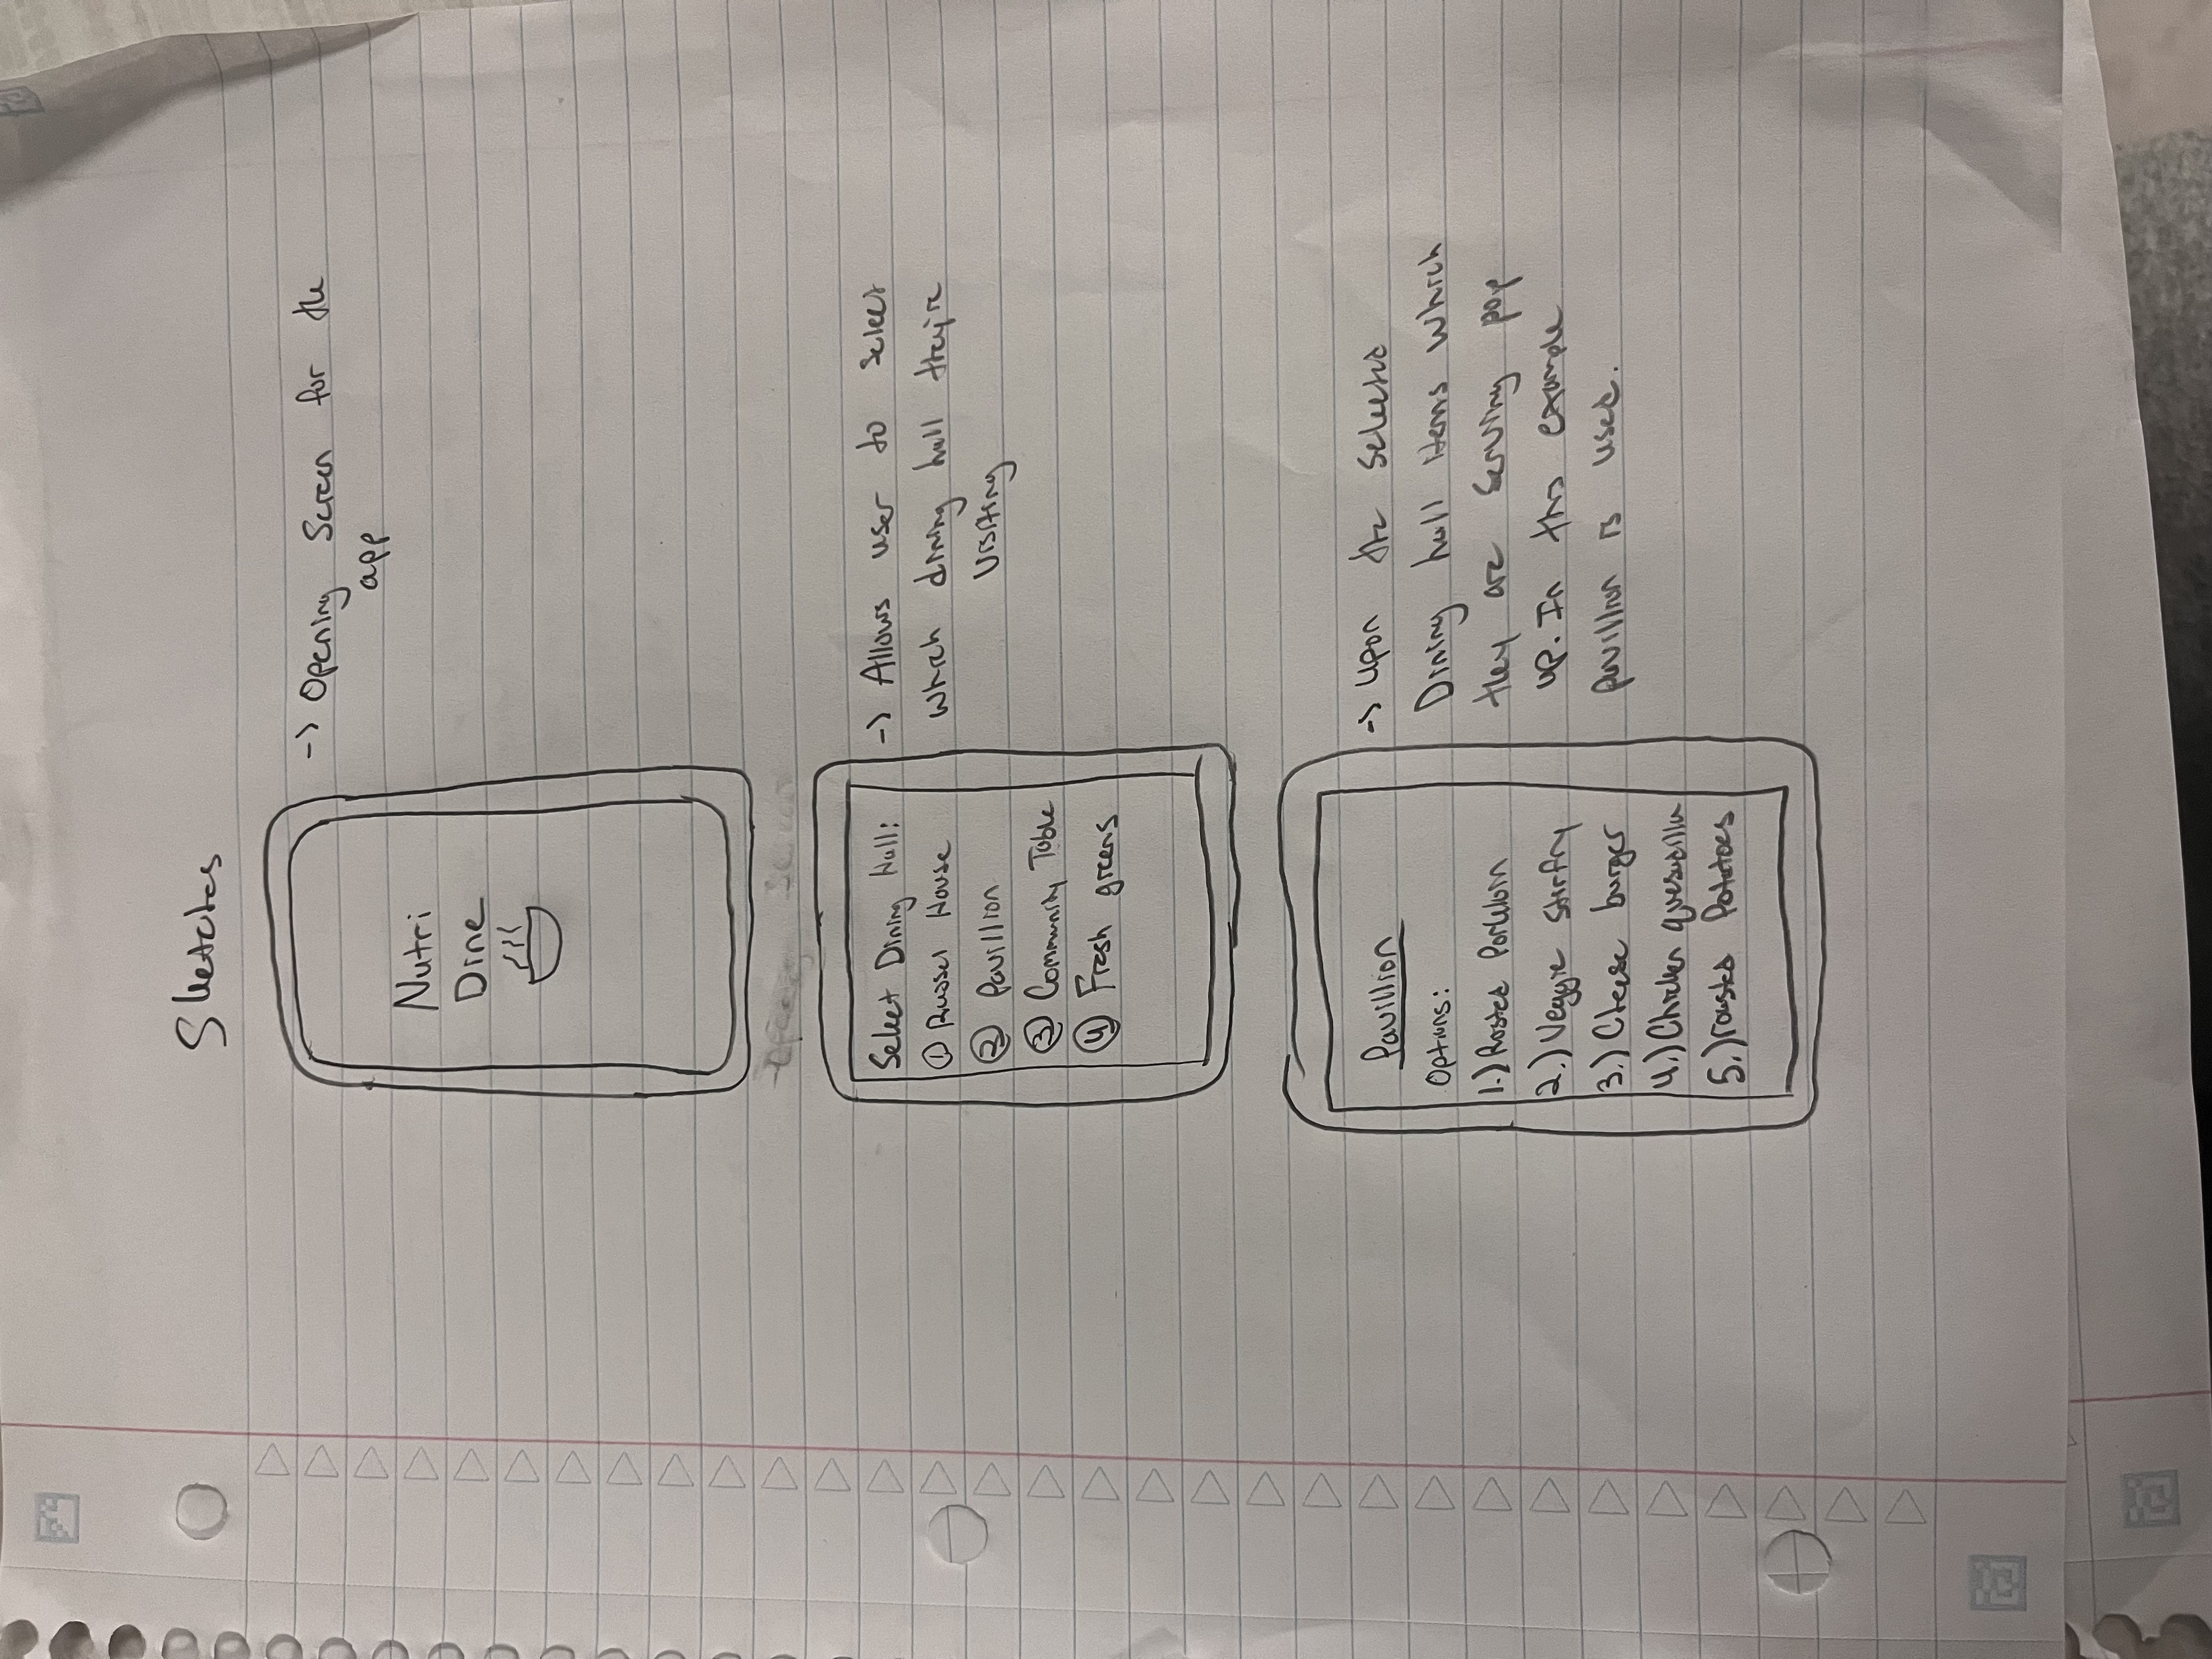 Sketches
Nutri
Dine
-> Opening Screen for the
app
Select Dining Hall:
① Russel House
② Pavillion
③ Community Table
④ Fresh greens
-> Allows user to select
which dining hall they're
visiting
Pavillion
Options:
1.) Rosted Porkloin
2.) Veggie stirfry
3.) Cheese burger
4.) Chicken quesadilla
5.) roasted Potatoes
-> Upon the selected
Dining hall items which
they are serving pop
up. In this example
pavillion is used.